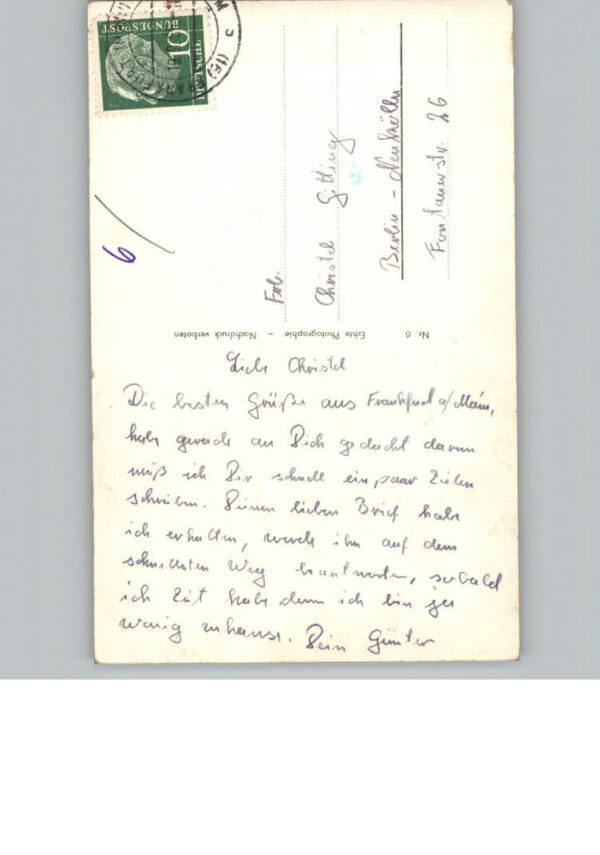 Liebe Christel
Die besten Grüße aus Frankfurt a/Main,
habe gerade an Dich gedacht darum
muß ich Dir schnell ein paar Zeilen
schreiben. Deinen lieben Brief habe
ich erhalten, werde ihn auf dem
schnellsten Weg beantworten, sobald
ich Zeit habe denn ich bin
wenig zuhause. Dein Günter
Frl.
Christel Gittling
Berlin - Neukölln
Fontanestr. 26
Nr. 6 Echte Photographie - Nachdruck verboten
DEUTSCHE
BUNDESPOST
10
FRANKFURT
6